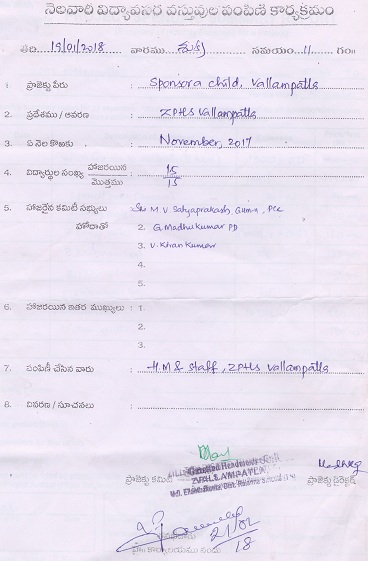 నెలవారి విద్యావసర వస్తువుల పంపిణి కార్యక్రమం
తేది 19/01/2018 వారము శుక్ర సమయం 11 గం॥
1. ప్రాజెక్టు పేరు : Sponsora child, Vallampatla
2. ప్రదేశము / ఆవరణ : ZPHS Vallampatla
3. ఏ నెల కొఱకు : November, 2017
4. విద్యార్థుల సంఖ్య హాజరయిన : 15
మొత్తము 15
5. హాజరైన కమిటీ సభ్యులు : Sri M.V Sathyaprakash
హోదాతో 2. G. Madhukumar PD
3. V. Kiran Kumar
4.
5.
6. హాజరయిన ఇతర ముఖ్యులు : 1.
2.
3.
7. పంపిణీ చేసిన వారు : H.M & Staff, ZPHS Vallampatla
8. వివరణ / సూచనలు :
Gazetted Headmaster
ప్రాజెక్టు కమిటీ ZPHS VALLAMPATLA ప్రాజెక్టు డైరెక్టర్
21/02
18